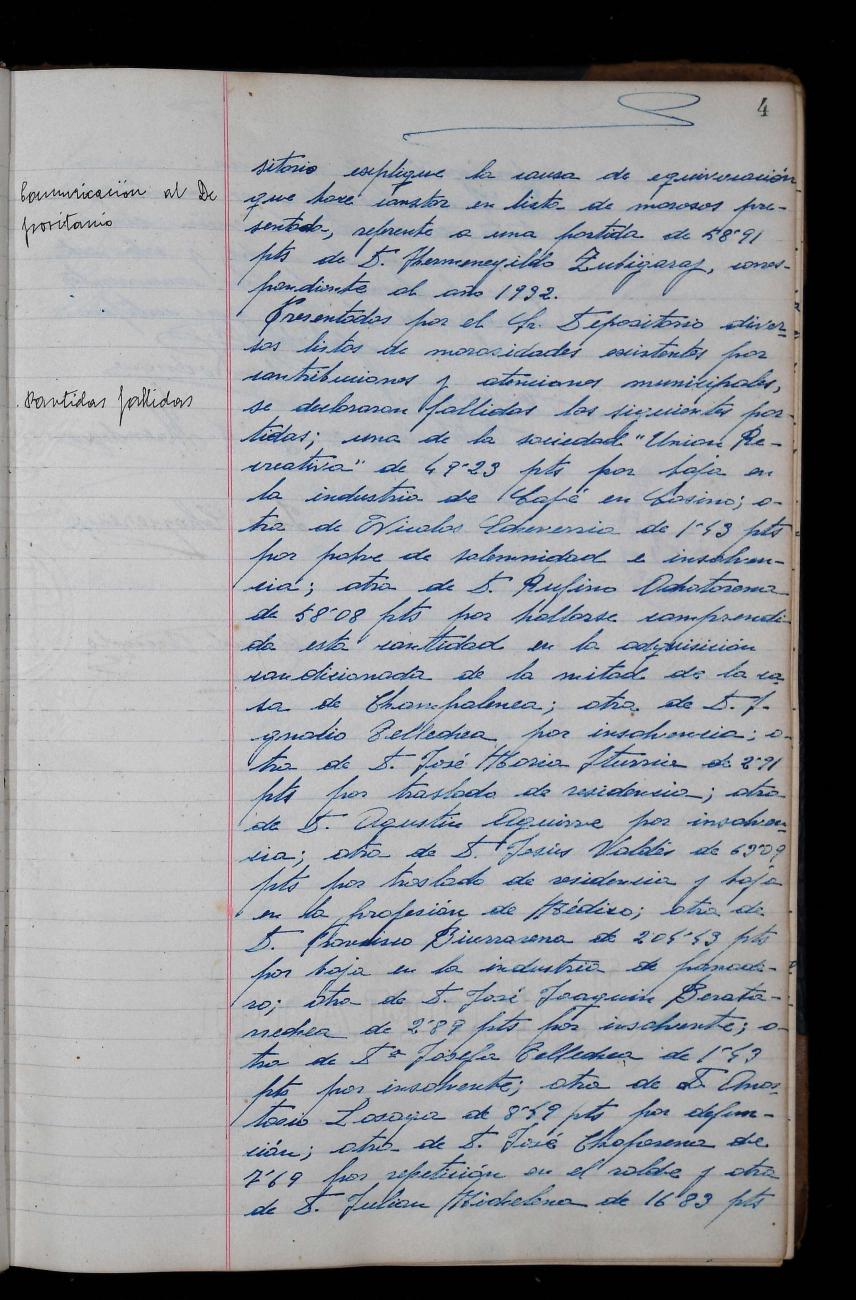 4
Comunicación al De
positario
sitario explique la causa de equivocación
que hace constar en lista de morosos pre-
sentada, refrente a una partida de 58'91
pts de D. Hermenegildo Zubigaray, corres-
pondiente al año 1932.
Presentadas por el Sr. Depositario diver-
sas listas de morosidades existentes por
contribuciones y atenciones municipales,
Partidas fallidas
se declararon fallidas las siguientes par-
tidas; una de la sociedad "Union Re-
creativa" de 49'23 pts por baja en
la industria de Café en Casino; o-
tra de Nicolas Echeverria de 1'43 pts
por pobre de solemnidad e insolven-
cia; otra de D. Rufino
de 58'08 pts por hallarse comprendi-
da esta cantidad en la adquisición
condicionada de la mitad de la ca-
sa de Champalenea; otra de D. I-
gnacio Tellechea por insolvencia; o-
tra de D. José Maria Iturria de 2'91
pts por traslado de residencia; otra
de D. Agustin Aguirre por insolven-
cia; otra de D. Jesús Valdés de 63'09
pts por traslado de residencia y baja
en la profesión de Médico; otra de
D. Biurrarena de 204'43 pts
por baja en la industria de panade-
ro; otra de D. José Joaquin Berata-
rrechea de 2'89 pts por insolvente; o-
tra de Dª Josefa Tellechea de 1'43
pts por insolvente; otra de D. Anas-
tasio Lasaga de 8'49 pts por defun-
ción; otra de D. José Choperena de
7'69 por repetición en el saldo y otra
de D. Julian Michelena de 16'83 pts